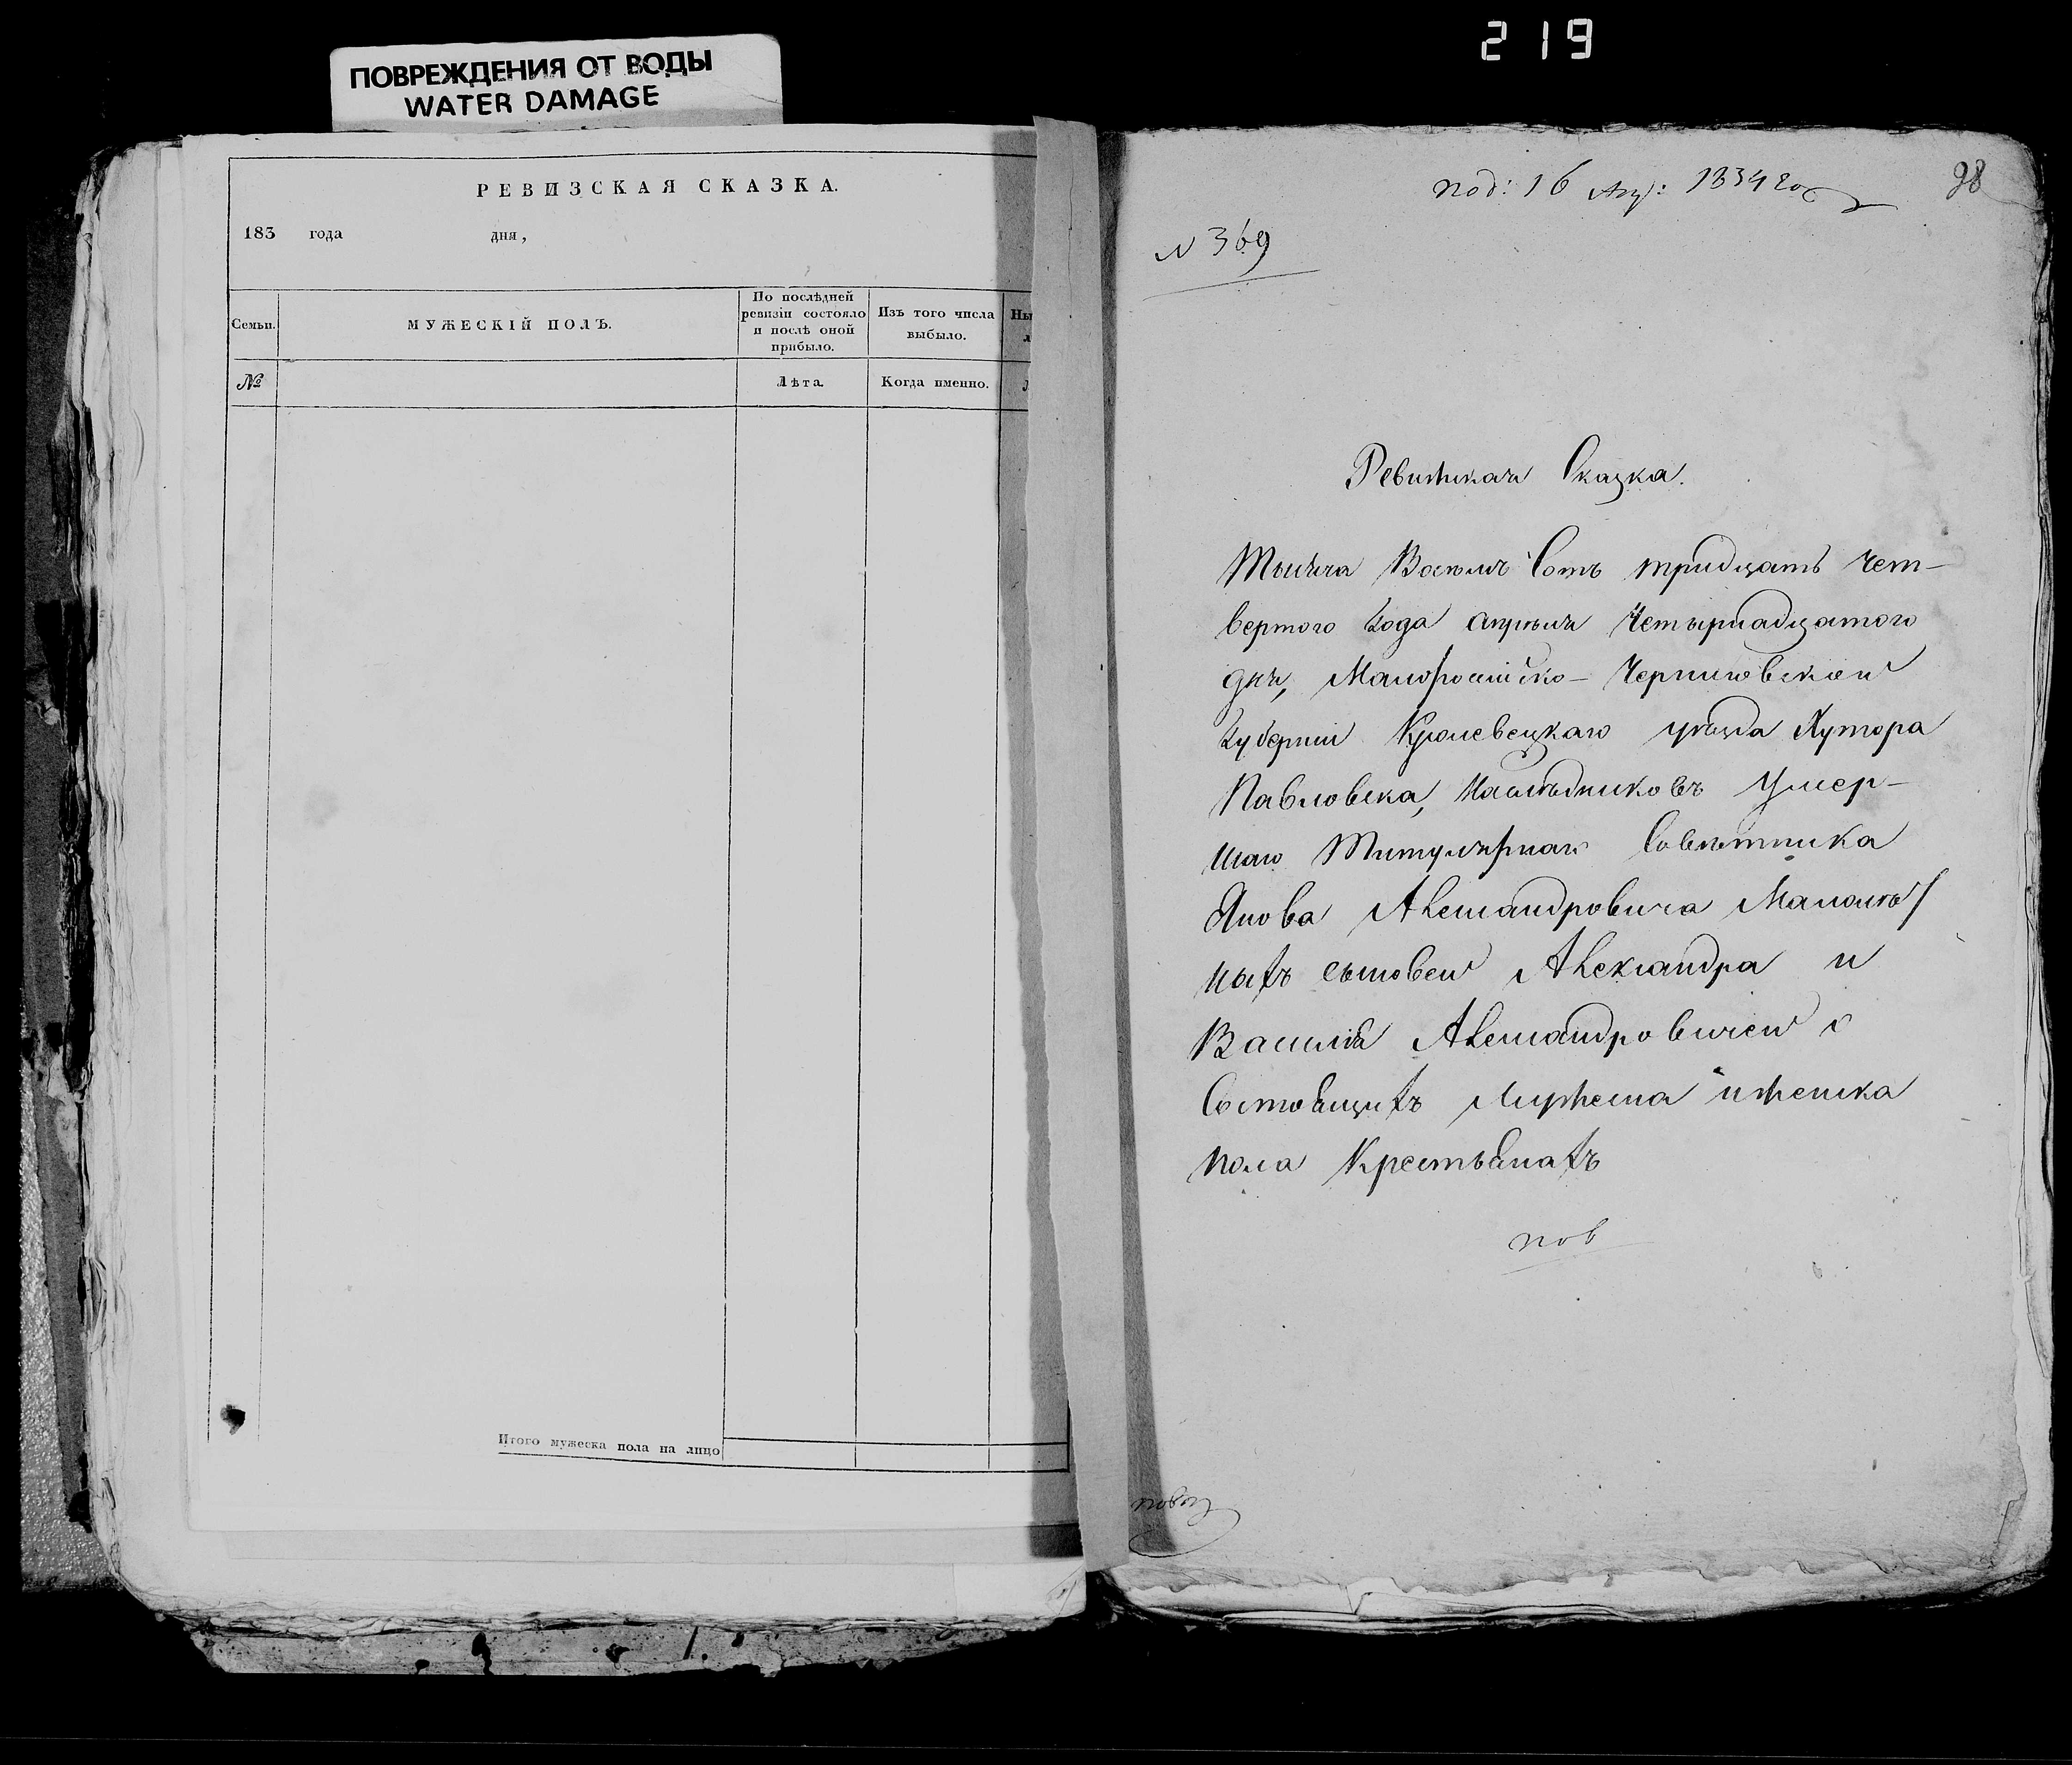 219
ПОВРЕЖДЕНИЯ ОТ ВОДЫ
WATER DAMAGE
РЕВИЗСКАЯ СКАЗКА.
183 года дня,
Семьи.
МУЖЕСКІЙ ПОЛЪ.
По послѣдней
ревизіи состояло
и послѣ оной
прибыло.
Изъ того числа
выбыло.
Ны
№
Лѣта.
Когда именно.
Итого мужеска пола на лицо
под: 16 Апр: 1834 го
98
N 369
Ревизская Сказка.
Тысяча Восемь Сотъ тридцать чет-
вертого года апреля Четырнадцатого
дня, Малороссійско- Черниговской
губерніи Кролевецкаго уѣзда Хутора
Павловска, наследниковъ Умер-
шаго Титулярнаго Советника
Александровича
ныхъ сыновей Александра и
Василія Александровичей о
Состоящихъ Мужеска и женска
пола Крестьянахъ
пов